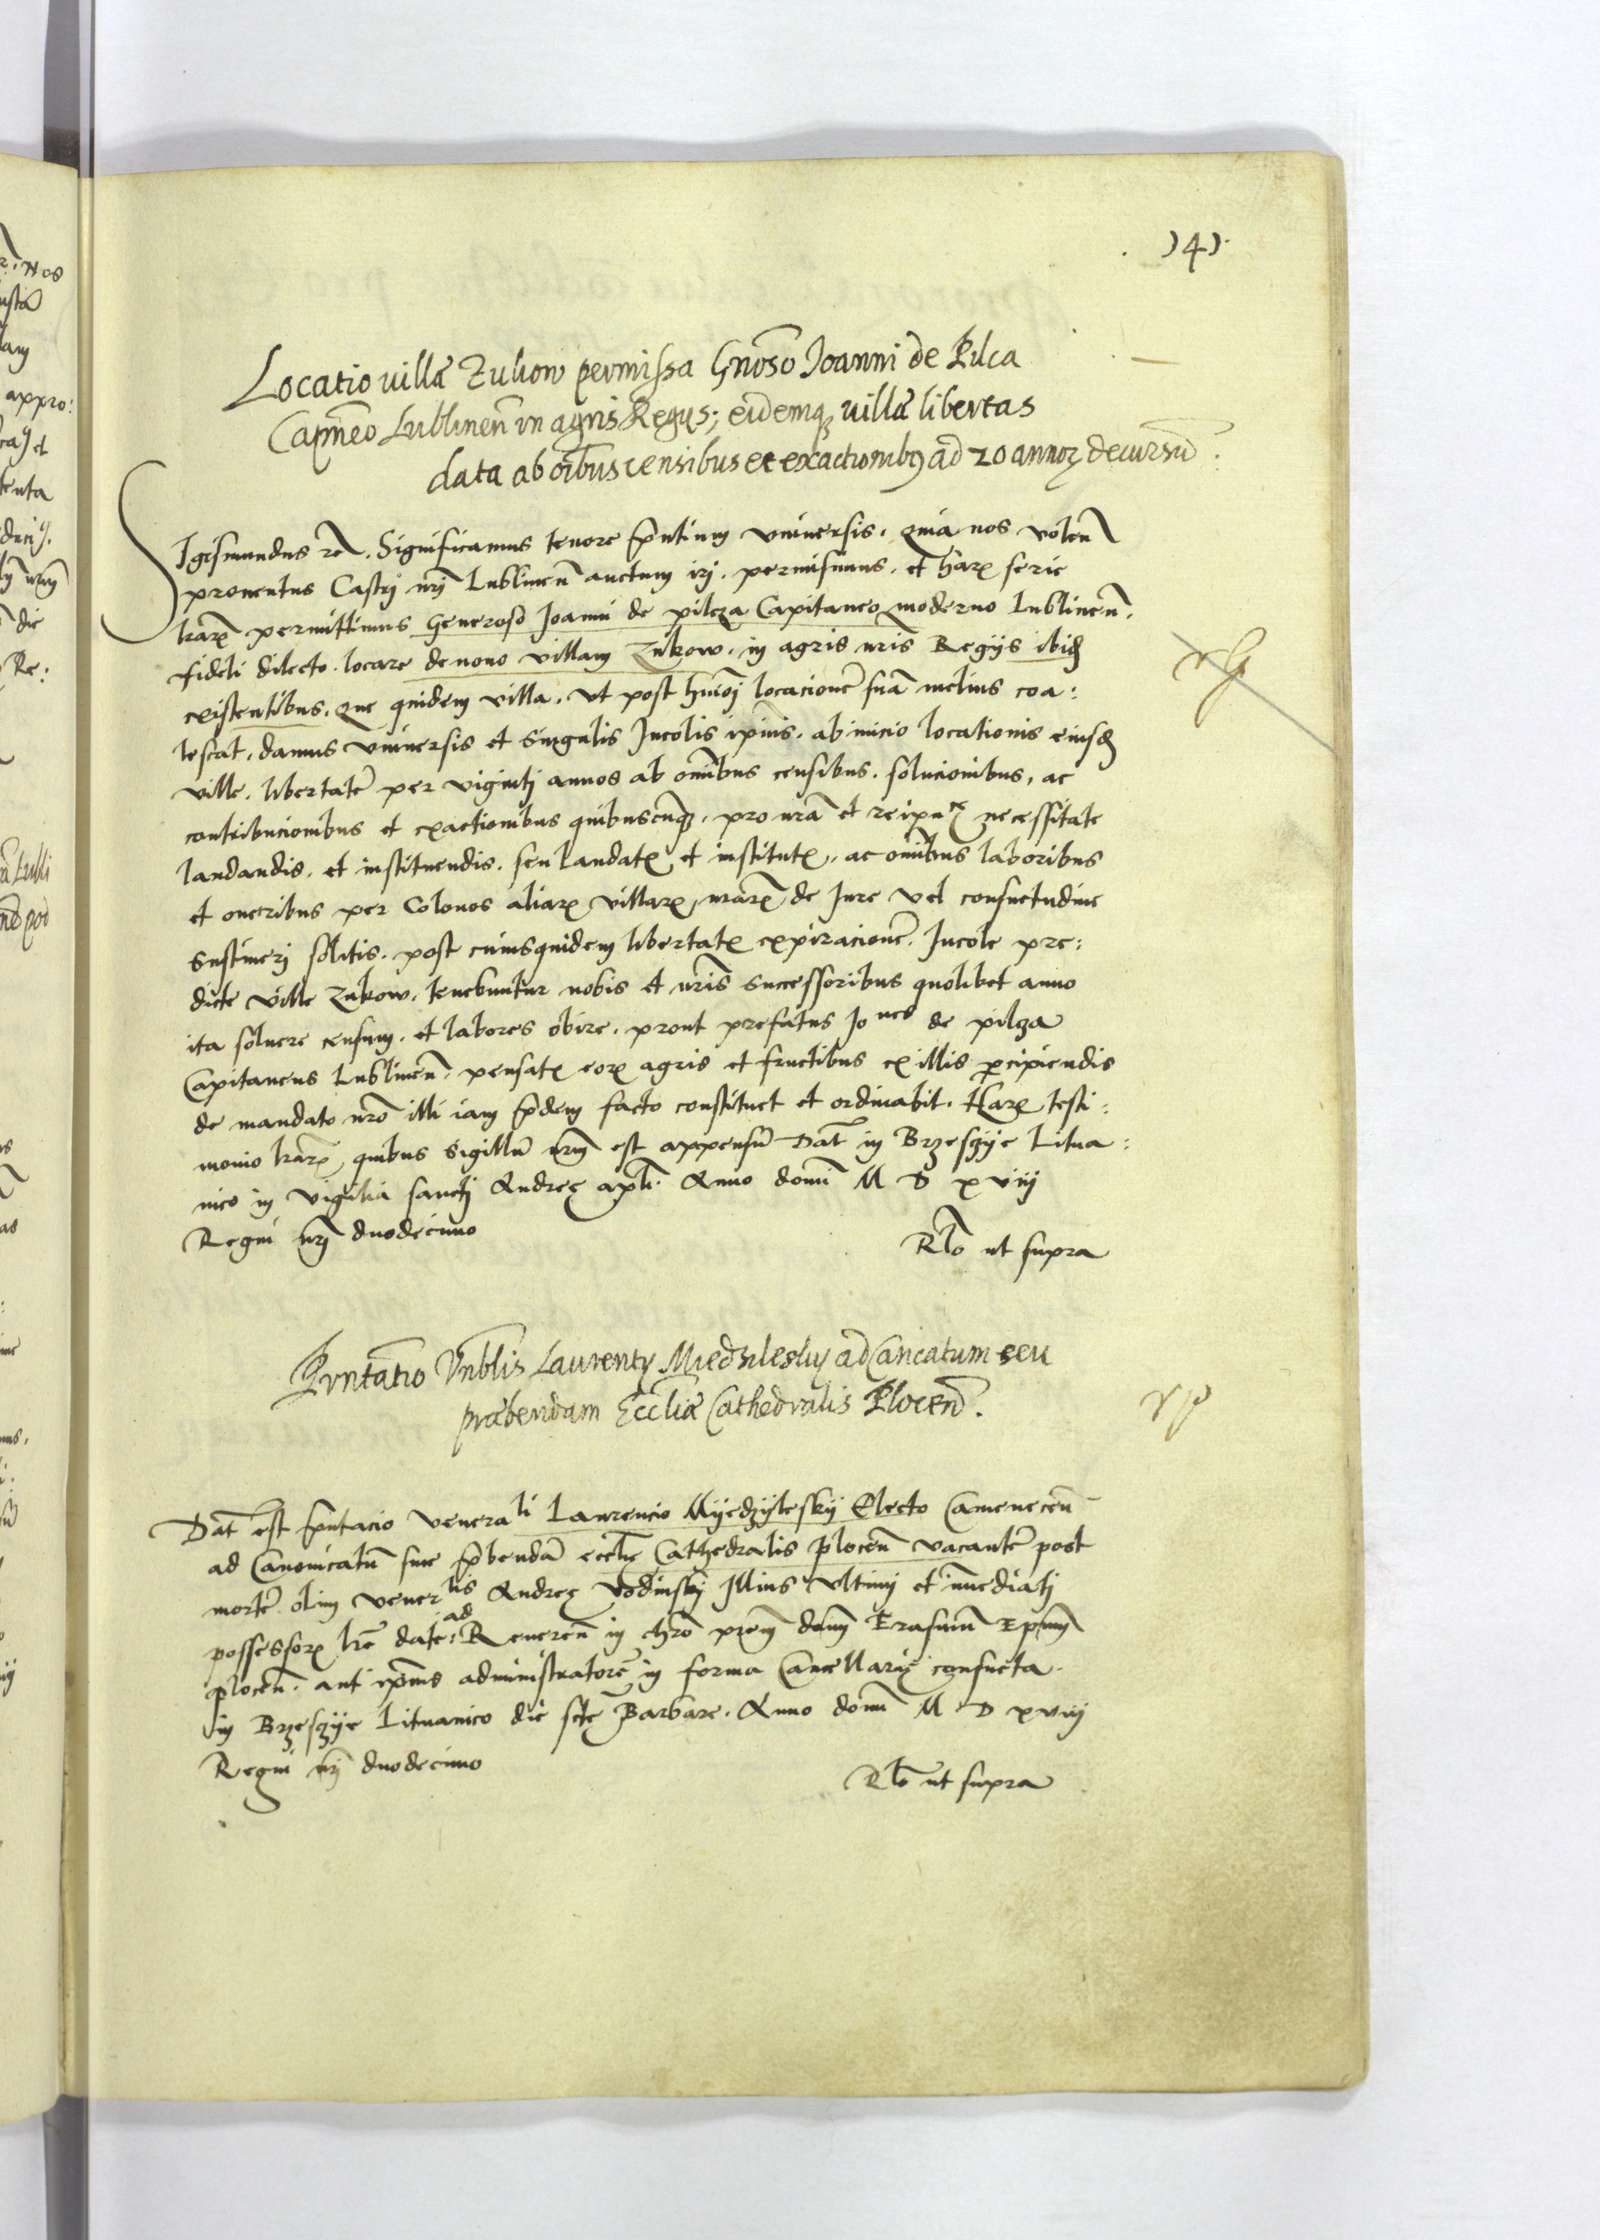 141.
Locatio villæ Zukow permissa Gnõso Joanni de Pilca
Capneo Lublinen̄ in agris Regijs; eidemq; villæ libertas
data ab oībus censibus et exactionibꝫ ad 20 annoꝝ decursū.
Sigismundus rē. Significamus tenore pn̄tium vniuersis. Quia nos volen̄
prouentus Castrj nrj̄ Lublinen̄ auctum irj. permisimus. et harꝝ serie
lrarꝝ permittimus Generoso Joanni de pilcza Capitaneo moderno Lublinen̄.
fideli dilecto. locare de nouo villam Zukow. in agris nr̄is Regijs ibid̄
existentibus. que quidem villa. vt post hmōi locacionē suā melius coa:
lescat. damus vniuersis et singulis Incolis ipius. ab inicio locationis eiusd̄
ville. libertatē per vigintj annos ab omībus censibus. solucionibus. ac
contribucionibus et exactionibus quibuscūqꝫ. pro nrā et reipuce necessitate
laudandis. et instituendis. seu laudatꝭ et institutꝭ. ac omībus laboribus
et oneribus per Colonos aliarꝝ villarꝝ nrarꝝ de Iure vel consuetudine
sustinerj solitis. post cuiusquidem libertatꝭ expiracionē. Incole pre:
dicte ville Zukow. tenebuntur nobis et nr̄is successoribus quolibet anno
ita soluere censum. et labores obire. prout prefatus Jo nes de pilcza
Capitaneus Lublinen̄. pensatꝭ eorꝝ agris et fructibus ex illis ꝑcipiendis
de mandato nr̄o illi iam pridem facto constituet et ordinabit. Harꝝ testi:
monio lrarꝝ, quibus sigillū nrm̄ est appensū Dat̄ in Brzesczye Litua:
nico in vigilia sanctj Andreę apl̄i. Anno domī M D xviij
Regni nrj̄ duodecimo
Rl̄o ut supra
Pn̄tatio Vn̄blis Laurentij Miedzileskij ad Cancatum seu
præbendam Eccliæ Cathedralis Plocen̄.
Dat̄ est pn̄tacio venera li Laurencio Myedzyleskij Electo Camenecen̄
ad Canonicatū siue p̄bendā eccłie Cathedralis plocen̄ vacantē post
mortē olim vener lis Andreę Vodinskj Illius vltimj et imediatj
possessorꝭ lrē date ad Reueren̄ in chrō prem̄ dnm̄ Erasmū Epm̄
plocen̄. aut ipius administratorē in forma Cancellarię consueta.
in Brzesczye Lituanico die scte Barbare. Anno domī M D xviij
Regni nrj̄ duodecimo
Rl̄o ut supra